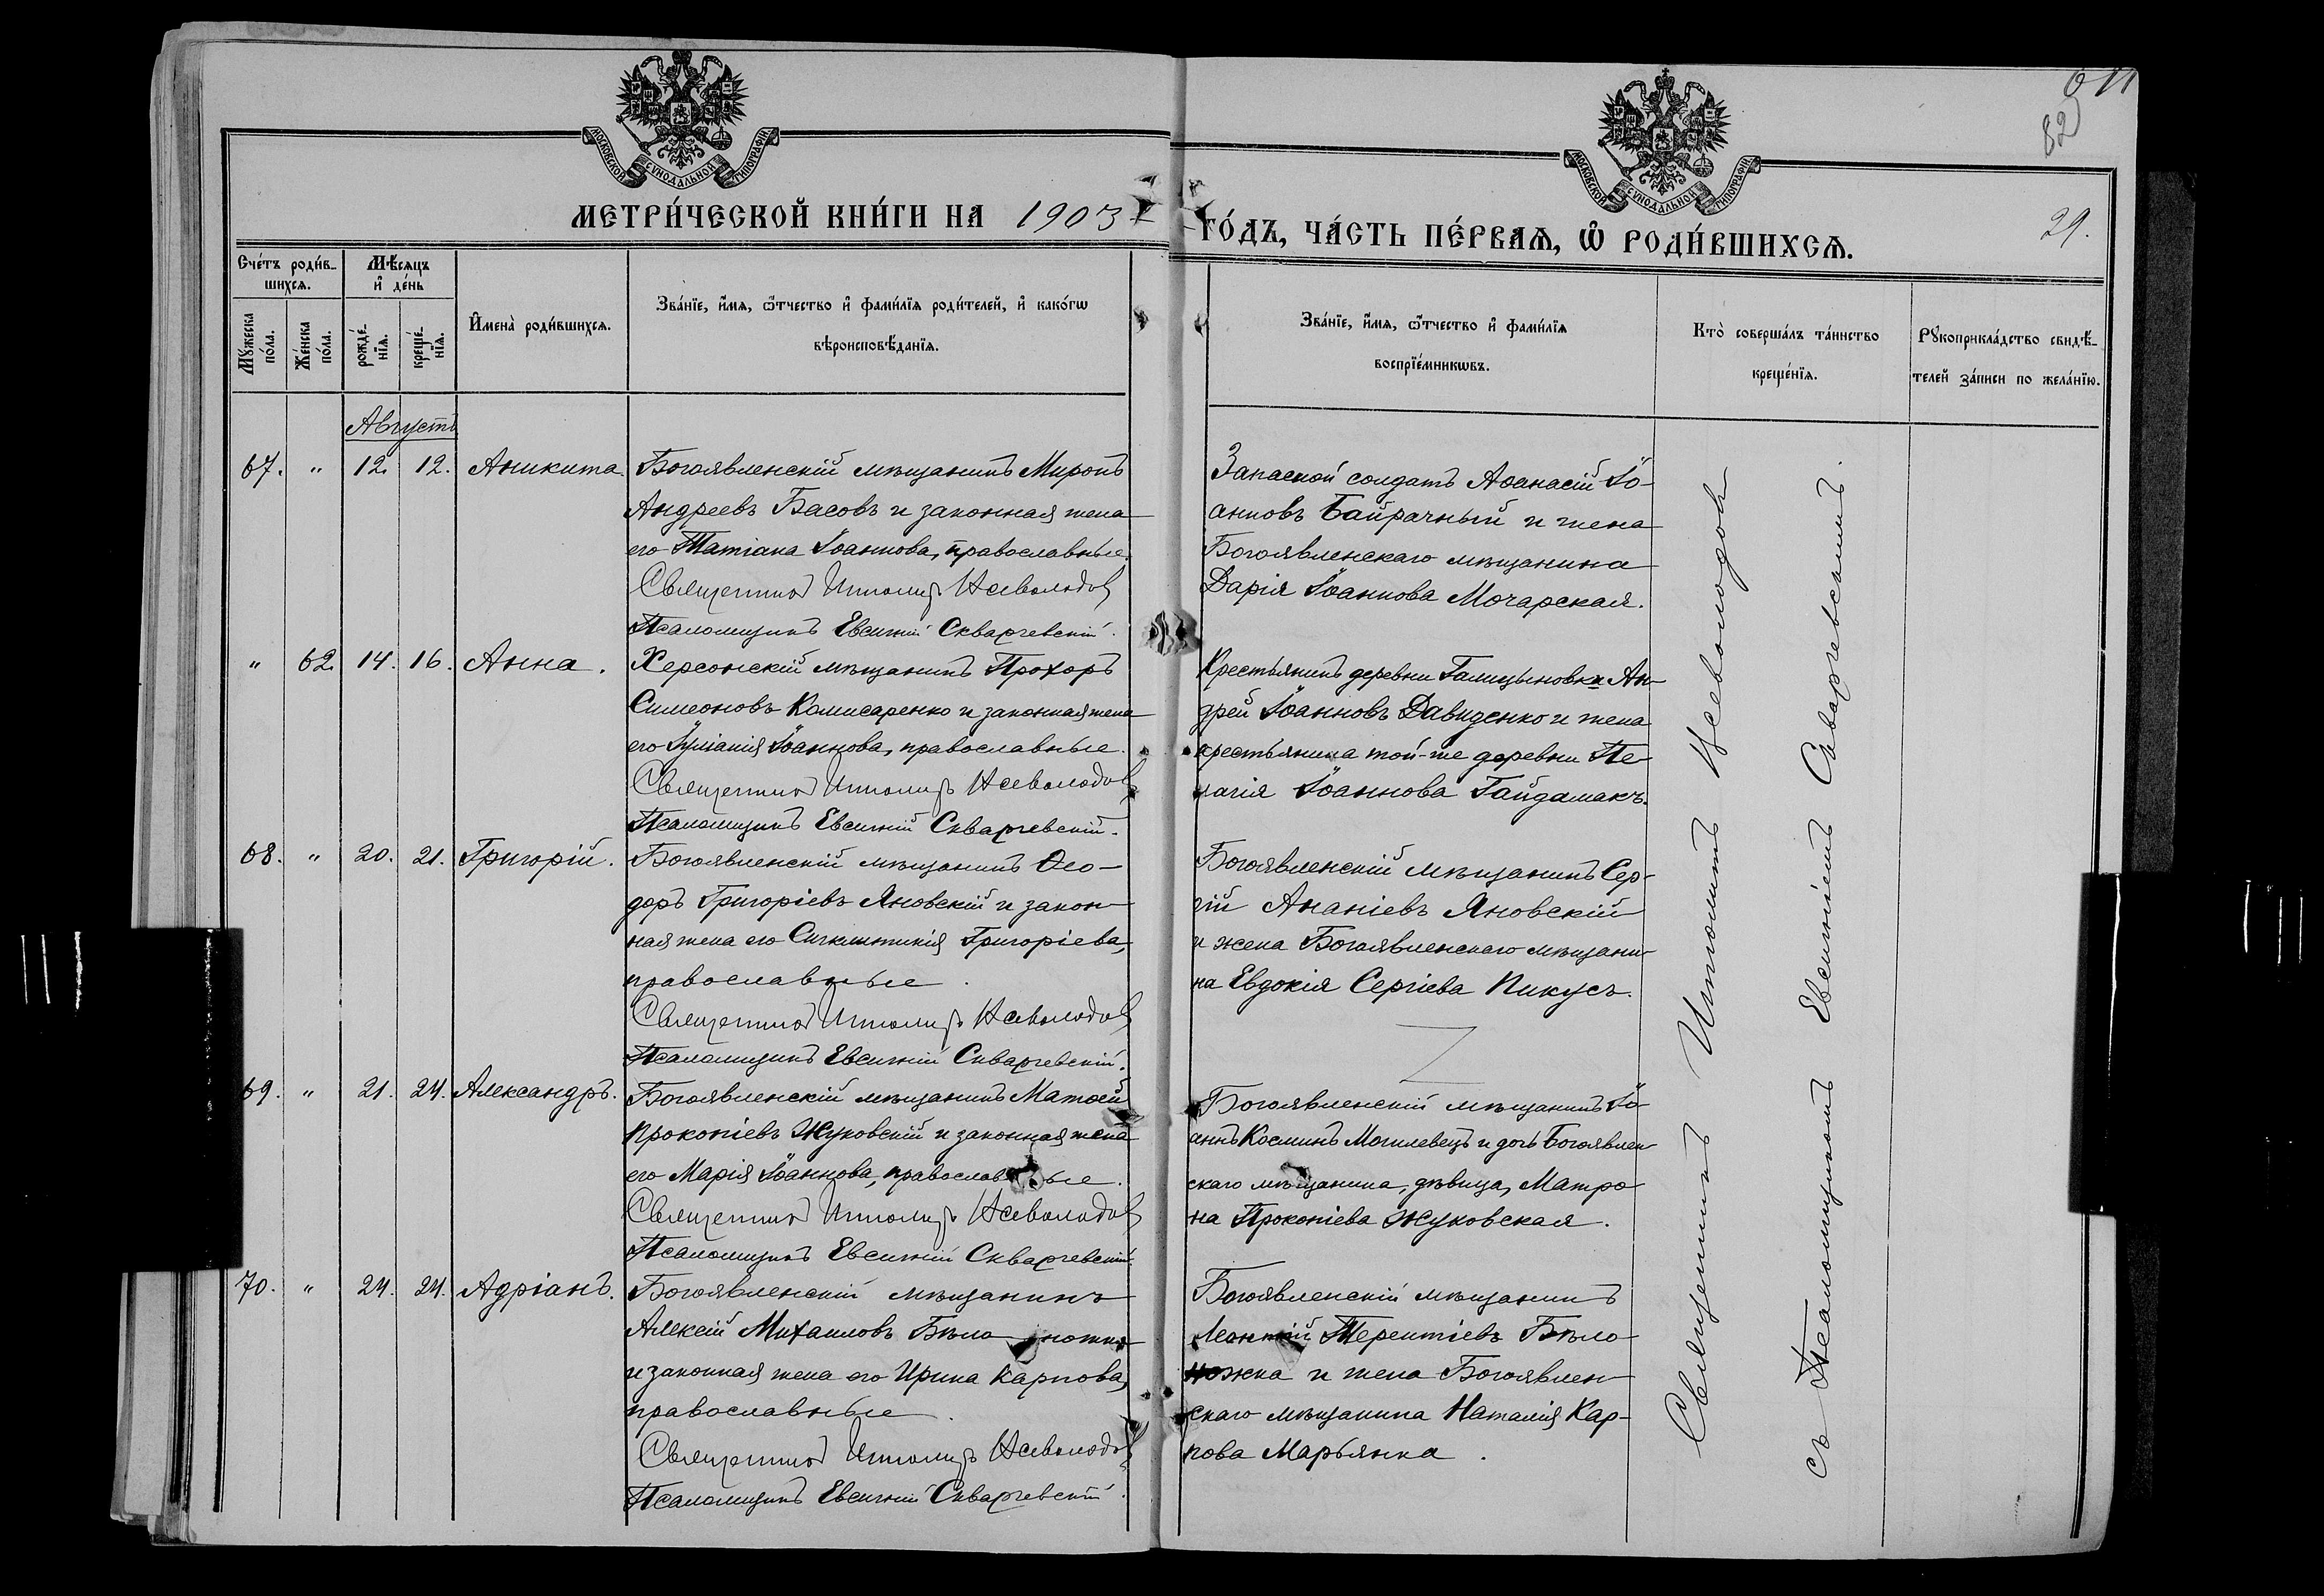 МОСКОВСКОЙ СѴНОДАЛЬНОЙ ТИПОГРАФІИ
МОСКОВСКОЙ СѴНОДАЛЬНОЙ ТИПОГРАФІИ
82
МЕТРИ́ЧЕСКОЙ КНИ́ГИ НА 1903
ГО́ДЪ, ЧА́СТЬ ПЕ́РВАѦ, Ѡ РОДИ́ВШИХСѦ.
29.
Сче́тъ роди́в-
шихсѧ.
Мꙋ́жеска по́ла.
Же́нска по́ла.
Мѣ́сѧцъ и де́нь
рожде́-
нїѧ.
креще́-
нїѧ.
Имена̀ роди́вшихсѧ.
Зва́нїе, и́мѧ, ѻ́тчество и фами́лїѧ роди́телей, и како́гѡ
вѣроисповѣ́данїѧ.
Зва́нїе, и́мѧ, ѻ́тчество и фами́лїѧ
воспрїе́мникѡвъ.
Кто̀ соверша́лъ та́инство
креще́нїѧ.
Рꙋкоприкла́дство свидѣ́-
телей за́писи по жела́нїю.
Августъ
67. " 12. 12. Аникита.
Богоявленскій мѣщанинъ Миронъ
Андреевъ Басовъ и законная жена
его Татіана Іоаннова, православные.
Священникъ Ипполитъ Всеволодовъ
Псаломщикъ Евсигній Скварчевскій.
Запасной солдатъ Аѳанасій Іо-
анновъ Байрачный и жена
Богоявленскаго мѣщанина
Дарія Іоаннова Мочарская.
" 62. 14. 16. Анна.
Херсонскій мѣщанинъ Прохоръ
Симеоновъ Комисаренко и законная жена
его Іуліанія Іоаннова, православные.
Священникъ Ипполитъ Всеволодовъ
Псаломщикъ Евсигній Скварчевскій.
Крестьянинъ деревни Галицыновки Ан-
дрей Іоанновъ Давиденко и жена
крестьянина той-же деревни Пе-
лагія Іоаннова Гайдамакъ.
68. " 20. 21. Григорій.
Богоявленскій мѣщанинъ Ѳео-
доръ Григоріевъ Яновскій и закон-
ная жена его Сигклитикія Григоріева,
православные.
Священникъ Ипполитъ Всеволодовъ
Псаломщикъ Евсигній Скварчевскій.
Богоявленскій мѣщанинъ Сер-
гій Ананіевъ Яновскій
и жена Богоявленскаго мѣщани-
на Евдокія Сергіева Пикусъ.
69. " 21. 24. Александръ.
Богоявленскій мѣщанинъ Матѳей
Прокопіевъ Жуковскій и законная жена
его Марія Іоаннова, православные.
Священникъ Ипполитъ Всеволодовъ
Псаломщикъ Евсигній Скварчевскій.
Богоявленскій мѣщанинъ Іо-
аннъ Косминъ Могилевецъ и дочь Богоявлен-
скаго мѣщанина, дѣвица, Матро-
на Прокопіева Жуковская.
70. " 24. 24. Адріанъ.
Богоявленскій мѣщанинъ
Алексій Михаиловъ Бѣлоножка
и законная жена его Ирина Карпова,
православные.
Священникъ Ипполитъ Всеволодовъ
Псаломщикъ Евсигній Скварчевскій.
Богоявленскій мѣщанинъ
Леонтій Терентіевъ Бѣло-
ножка и жена Богоявлен-
скаго мѣщанина Наталія Кар-
пова Марьянка.
Священникъ Ипполитъ Всеволодовъ
съ Псаломщикомъ Евсигніемъ Скварчевскимъ.